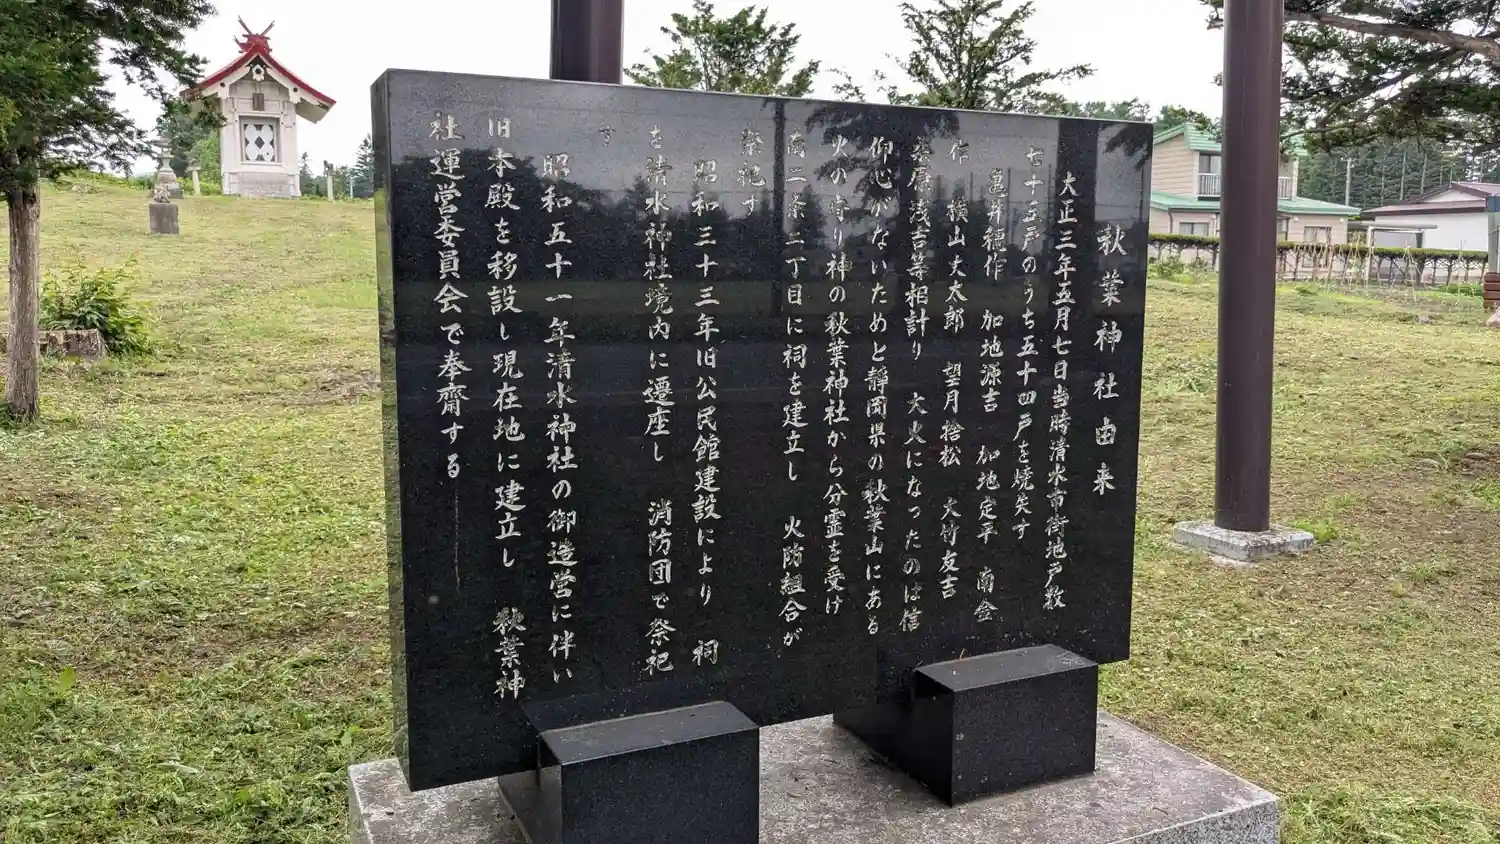 秋葉神社由来
大正三年五月七日当時清水市街地戸数
七十五戸のうち五十四戸を焼失す
亀井穂作 加地源吉 加地定平 南金
作 横山丈太郎 望月捨松 大竹友吉
広浅吉等相計り 大火になったのは信
仰心がないためと静岡県の秋葉山にある
火の守り神の秋葉神社から分霊を受け
南二条二丁目に祠を建立し 火防組合が
祭祀す
昭和三十三年旧公民館建設により 祠
を清水神社境内に遷座し 消防団で祭祀
す
昭和五十一年清水神社の御造営に伴い
旧本殿を移設し現在地に建立し 秋葉神
社運営委員会で奉齋する